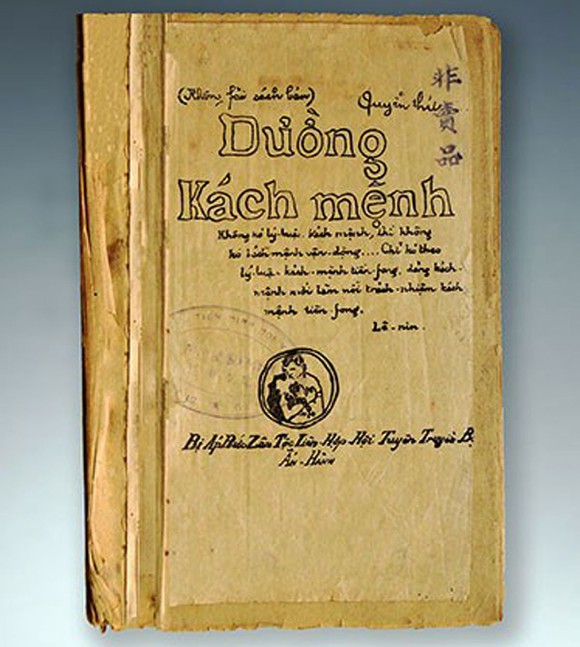 (Không fải sách bán) Quyển thứ
非賣品
Dường
Kách mệnh
Không kó lý-luận kách mệnh, thì không
kó kách mệnh vận-động.... Chỉ kó theo
lý-luận-kách-mệnh tiền-fong, đảng kách-
mệnh mới làm nổi trách-nhiệm kách
mệnh tiền-fong.
Lê-nin.
Bị Áp Bức Zân Tộc Liên-Hợp Hội Tuyên Truyền Bộ
Ấn-Hành